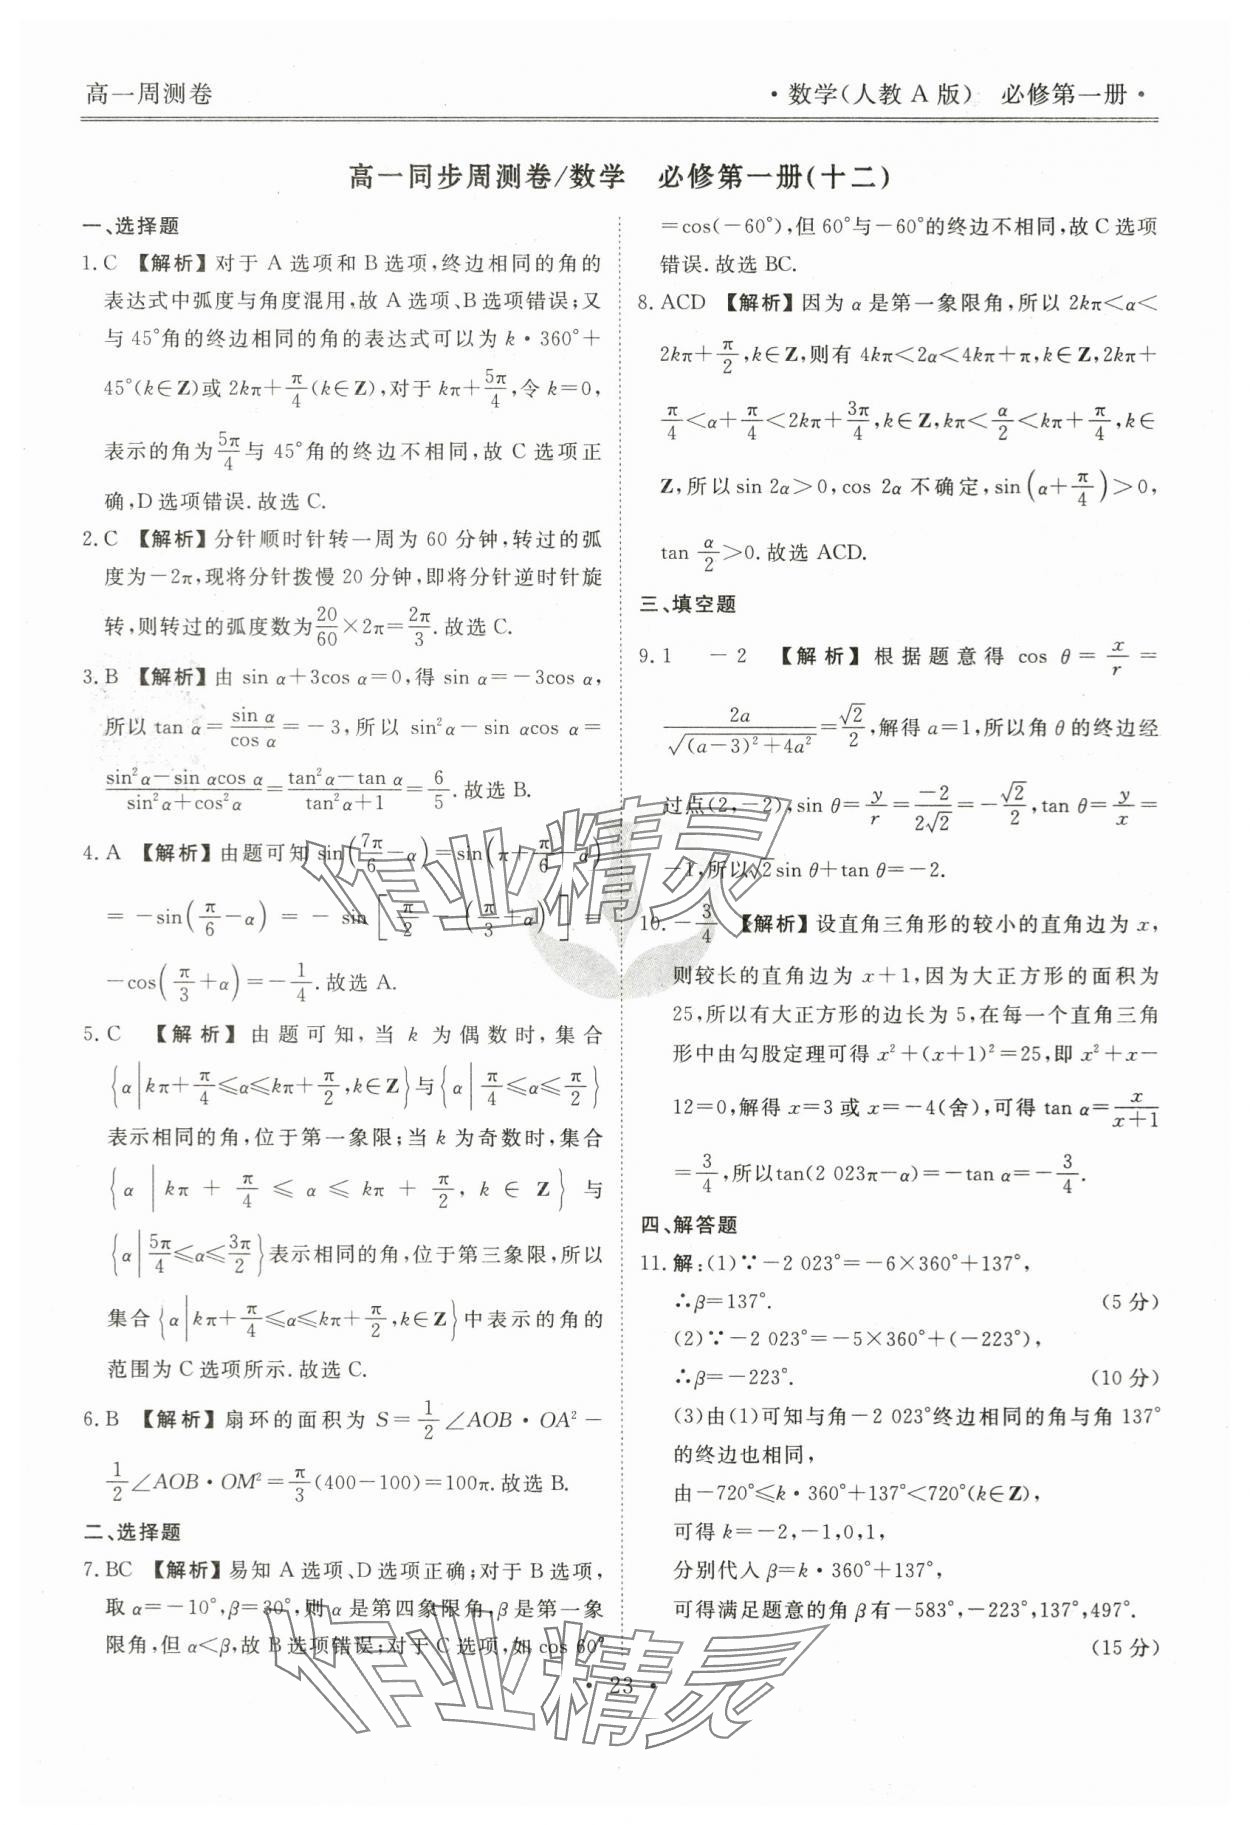 高一周测卷
·数学(人教 A 版) 必修第一册·
高一同步周测卷/数学 必修第一册(十二)
一、选择题
1. C 【解析】对于 A 选项和 B 选项,终边相同的角的
表达式中弧度与角度混用,故 A 选项、B 选项错误;又
与 45°角的终边相同的角的表达式可以为 k·360°+
45°(k∈Z)或 2kπ+π/4(k∈Z),对于 kπ+5π/4,令 k=0,
表示的角为5π/4与 45°角的终边不相同,故 C 选项正
确,D 选项错误.故选 C.
2. C 【解析】分针顺时针转一周为 60 分钟,转过的弧
度为-2π,现将分针拨慢 20 分钟,即将分针逆时针旋
转,则转过的弧度数为20/60×2π=2π/3.故选 C.
3. B 【解析】由 sin α+3cos α=0,得 sin α=-3cos α,
所以 tan α=sin α/cos α=-3,所以 sin²α-sin αcos α=
(sin²α-sin αcos α)/(sin²α+cos²α)=(tan²α-tan α)/(tan²α+1)=6/5.故选 B.
4. A 【解析】由题可知 sin(7π/6-α)=sin(π+π/6-α)
=-sin(π/6-α)=-sin[π/2-(π/3+α)]=
-cos(π/3+α)=-1/4.故选 A.
5. C 【解析】由题可知,当 k 为偶数时,集合
{α|kπ+π/4≤α≤kπ+π/2,k∈Z}与{α|π/4≤α≤π/2}
表示相同的角,位于第一象限;当 k 为奇数时,集合
{α|kπ+π/4≤α≤kπ+π/2,k∈Z}与
{α|5π/4≤α≤3π/2}表示相同的角,位于第三象限,所以
集合{α|kπ+π/4≤α≤kπ+π/2,k∈Z}中表示的角的
范围为 C 选项所示.故选 C.
6. B 【解析】扇环的面积为 S=1/2∠AOB·OA²-
1/2∠AOB·OM²=π/3(400-100)=100π.故选 B.
二、选择题
7. BC 【解析】易知 A 选项、D 选项正确;对于 B 选项,
取 α=-10°,β=30°,则 α 是第四象限角,β 是第一象
限角,但 α<β,故 B 选项错误;对于 C 选项,如 cos 60°
=cos(-60°),但 60°与-60°的终边不相同,故 C 选项
错误.故选 BC.
8. ACD 【解析】因为 α 是第一象限角,所以 2kπ<α<
2kπ+π/2,k∈Z,则有 4kπ<2α<4kπ+π,k∈Z,2kπ+
π/4<α+π/4<2kπ+3π/4,k∈Z,kπ<α/2<kπ+π/4,k∈
Z,所以 sin 2α>0,cos 2α 不确定,sin(α+π/4)>0,
tan α/2>0.故选 ACD.
三、填空题
9. 1 -2 【解析】根据题意得 cos θ=x/r=
2a/√((a-3)²+4a²)=√2/2,解得 a=1,所以角 θ 的终边经
过点(2,-2),sin θ=y/r=-2/2√2=-√2/2,tan θ=y/x=
-1,所以√2sin θ+tan θ=-2.
10. -3/4 【解析】设直角三角形的较小的直角边为 x,
则较长的直角边为 x+1,因为大正方形的面积为
25,所以有大正方形的边长为 5,在每一个直角三角
形中由勾股定理可得 x²+(x+1)²=25,即 x²+x-
12=0,解得 x=3 或 x=-4(舍),可得 tan α=x/(x+1)
=3/4,所以tan(2 023π-α)=-tan α=-3/4.
四、解答题
11. 解:(1)∵-2 023°=-6×360°+137°,
∴β=137°. (5 分)
(2)∵-2 023°=-5×360°+(-223°),
∴β=-223°. (10 分)
(3)由(1)可知与角-2 023°终边相同的角与角 137°
的终边也相同,
由-720°≤k·360°+137°<720°(k∈Z),
可得 k=-2,-1,0,1,
分别代入 β=k·360°+137°,
可得满足题意的角 β 有-583°,-223°,137°,497°.
(15 分)
·23·
作业精灵
作业精灵